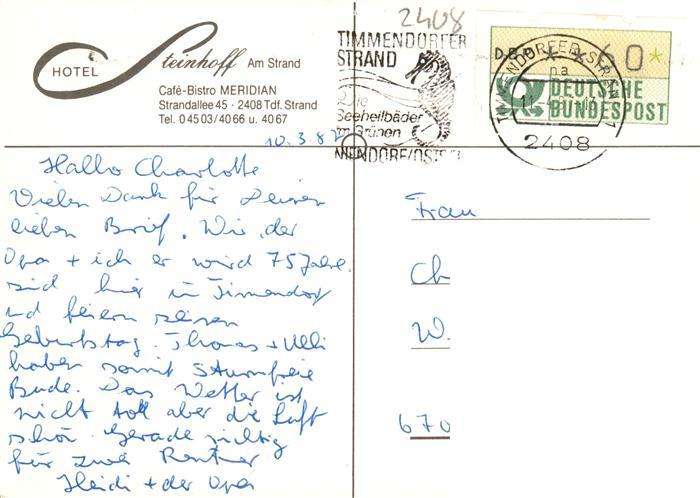 2408
HOTEL Steinhoff Am Strand
Café-Bistro MERIDIAN
Strandallee 45 · 2408 Tdf. Strand
Tel. 0 45 03/40 66 u. 40 67
TIMMENDORFER
STRAND
Seeheilbäder
im Grünen
DBP * * 60 *
DEUTSCHE
BUNDESPOST
2408
10.3.8
Hallo Charlotte
Vielen Dank für Deinen
lieben Brief. Wir, der
Opa + ich er wird 75 Jahre.
sind hier in Timmendorf
und feiern seinen
Geburtstag. Thomas + Ulli
haben somit Sturmfreie
Bude. Das Wetter ist
nicht toll aber die Luft
schön. Gerade richtig
für zwei Rentner
Heidi + der Opa
Frau
Ch
W.
670